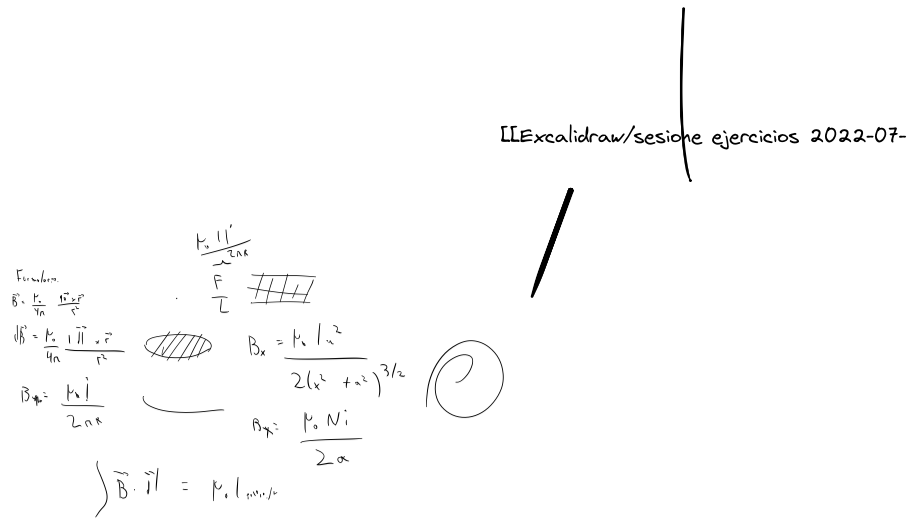 [[Excalidraw/sesione ejercicios 2022-07-
μ₀ I I' / 2πx
F / L
B⃗ = μ₀ / 4π qv⃗ × r⃗ / r²
dB⃗ = μ₀ / 4π I dl⃗ × r⃗ / r²
Bₓ = μ₀ I a² / 2(x² + a²)^3/2
B = μ₀ I / 2πx
Bₓ = μ₀ N i / 2a
∫ B⃗ · dl⃗ = μ₀ I